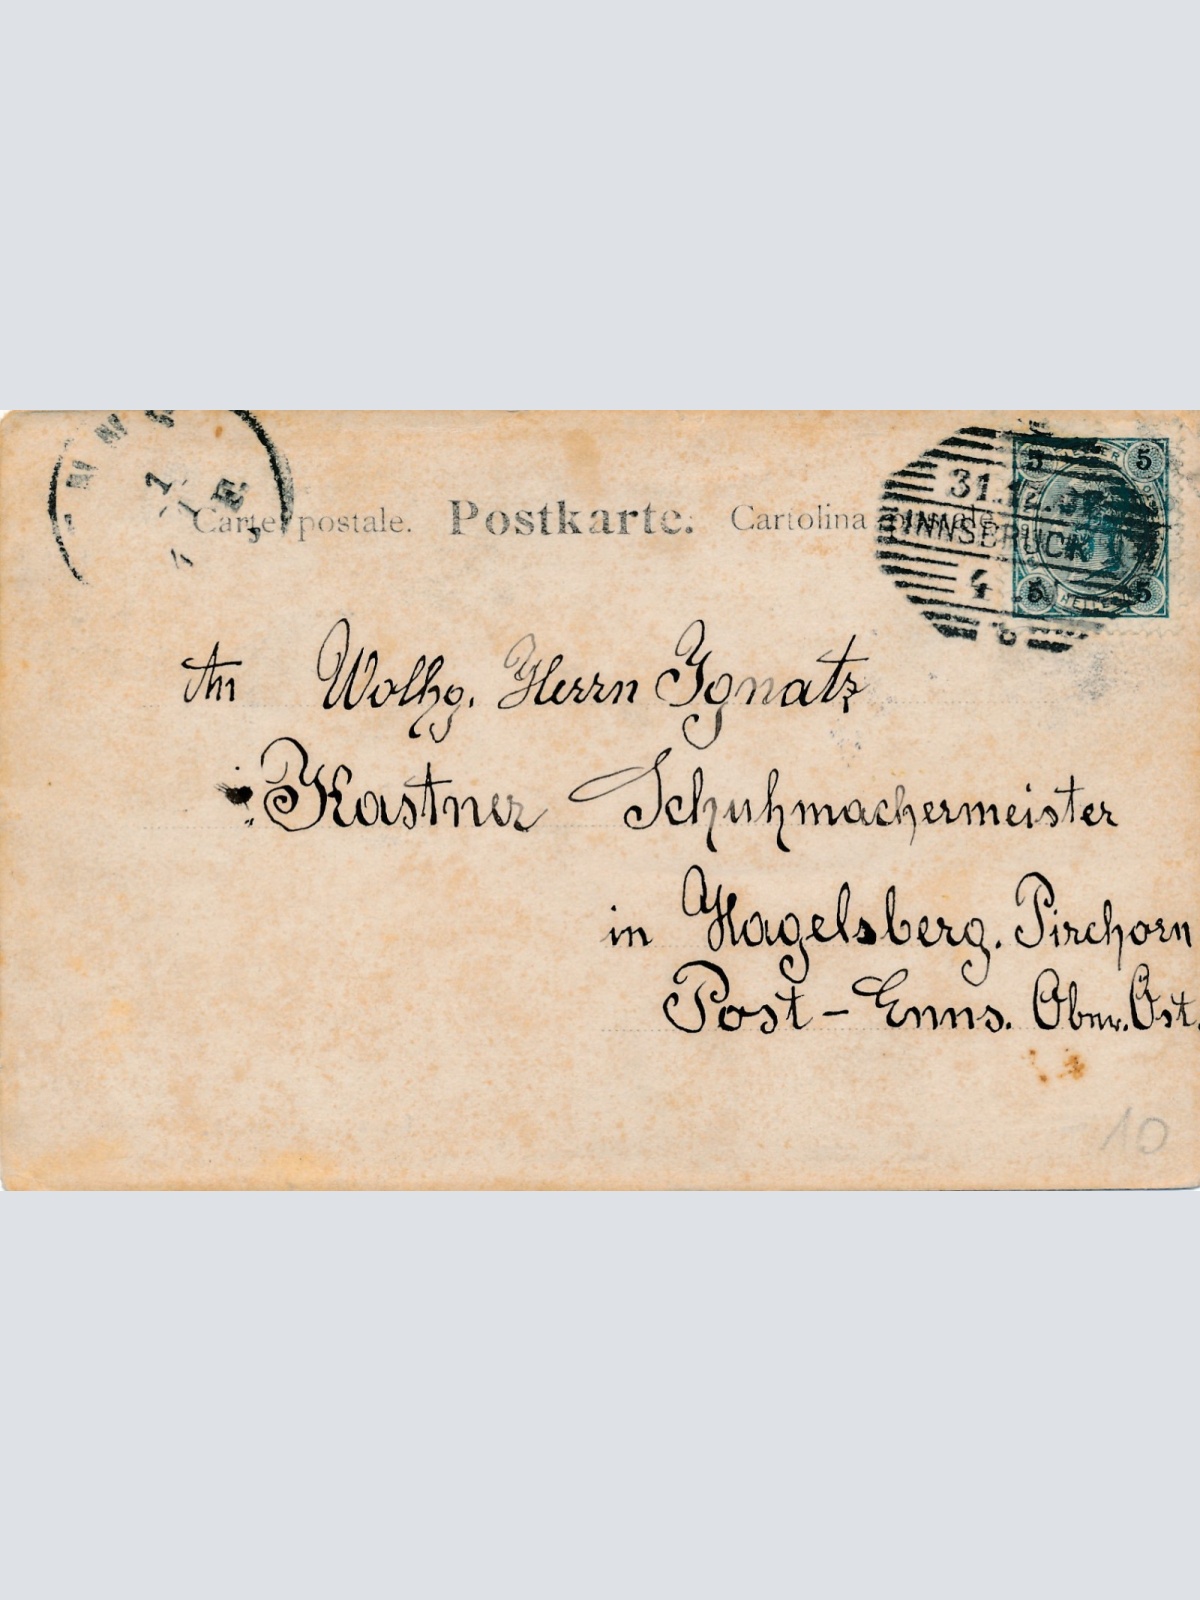 Carte postale. Postkarte. Cartolina
31.12.
INNSBRUCK
4
5 5
HELLER
5 5
An Wolhg. Herrn Ignatz
Kastner Schuhmachermeister
in Hagelsberg. Pirchorn
Post - Enns. Ober. Öst.
10